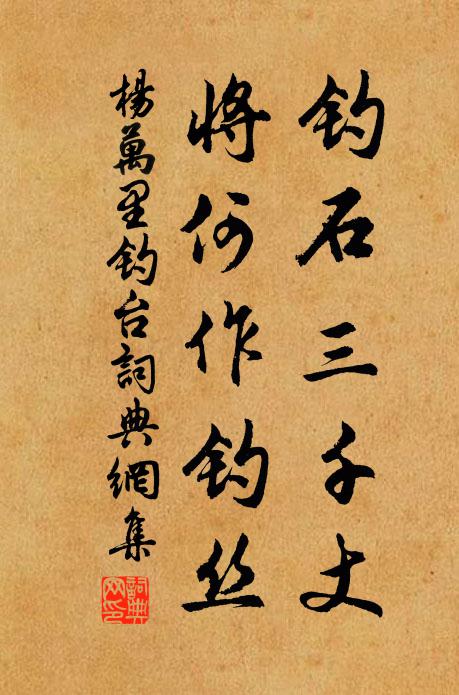 钓石三千丈
将何作钓丝
楊萬里钓台詞典網集
詞典网印